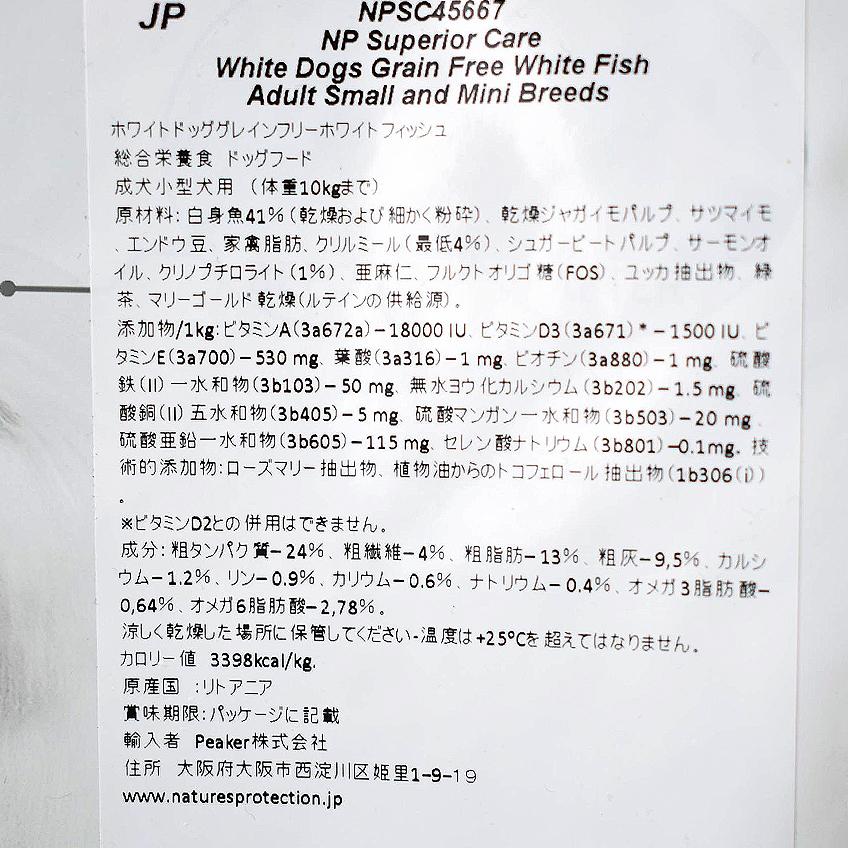 JP
NPSC45667
NP Superior Care
White Dogs Grain Free White Fish
Adult Small and Mini Breeds
ホワイトドッググレインフリーホワイトフィッシュ
総合栄養食 ドッグフード
成犬小型犬用 （体重10kgまで）
原材料: 白身魚41%（乾燥および細かく粉砕）、乾燥ジャガイモパルプ、サツマイモ
、エンドウ豆、家禽脂肪、クリルミール（最低4%）、シュガービートパルプ、サーモンオ
イル、クリノプチロライト（1%）、亜麻仁、フルクトオリゴ糖（FOS）、ユッカ抽出物、緑
茶、マリーゴールド乾燥（ルテインの供給源）。
添加物/1kg:ビタミンA（3a672a）–18000 IU、ビタミンD3（3a671）*–1500 IU、ビ
タミンE（3a700）–530 mg、葉酸（3a316）–1 mg、ビオチン（3a880）–1 mg、硫酸
鉄（II）一水和物（3b103）–50 mg、無水ヨウ化カルシウム（3b202）–1.5 mg、硫
酸銅（II）五水和物（3b405）–5 mg、硫酸マンガン一水和物（3b503）–20 mg
硫酸亜鉛一水和物（3b605）–115 mg、セレン酸ナトリウム（3b801）–0.1mg。技
術的添加物:ローズマリー抽出物、植物油からのトコフェロール抽出物（1b306（i））
。
※ビタミンD2との併用はできません。
成分: 粗タンパク質–24%、粗繊維–4%、粗脂肪–13%、粗灰–9,5%、カルシ
ウム–1.2%、リン–0.9%、カリウム–0.6%、ナトリウム–0.4%、オメガ3脂肪酸–
0,64%、オメガ6脂肪酸–2,78%。
涼しく乾燥した場所に保管してください-温度は+25°Cを超えてはなりません。
カロリー値 3398kcal/kg.
原産国 :リトアニア
賞味期限:パッケージに記載
輸入者 Peaker株式会社
住所 大阪府大阪市西淀川区姫里1-9-19
www.naturesprotection.jp